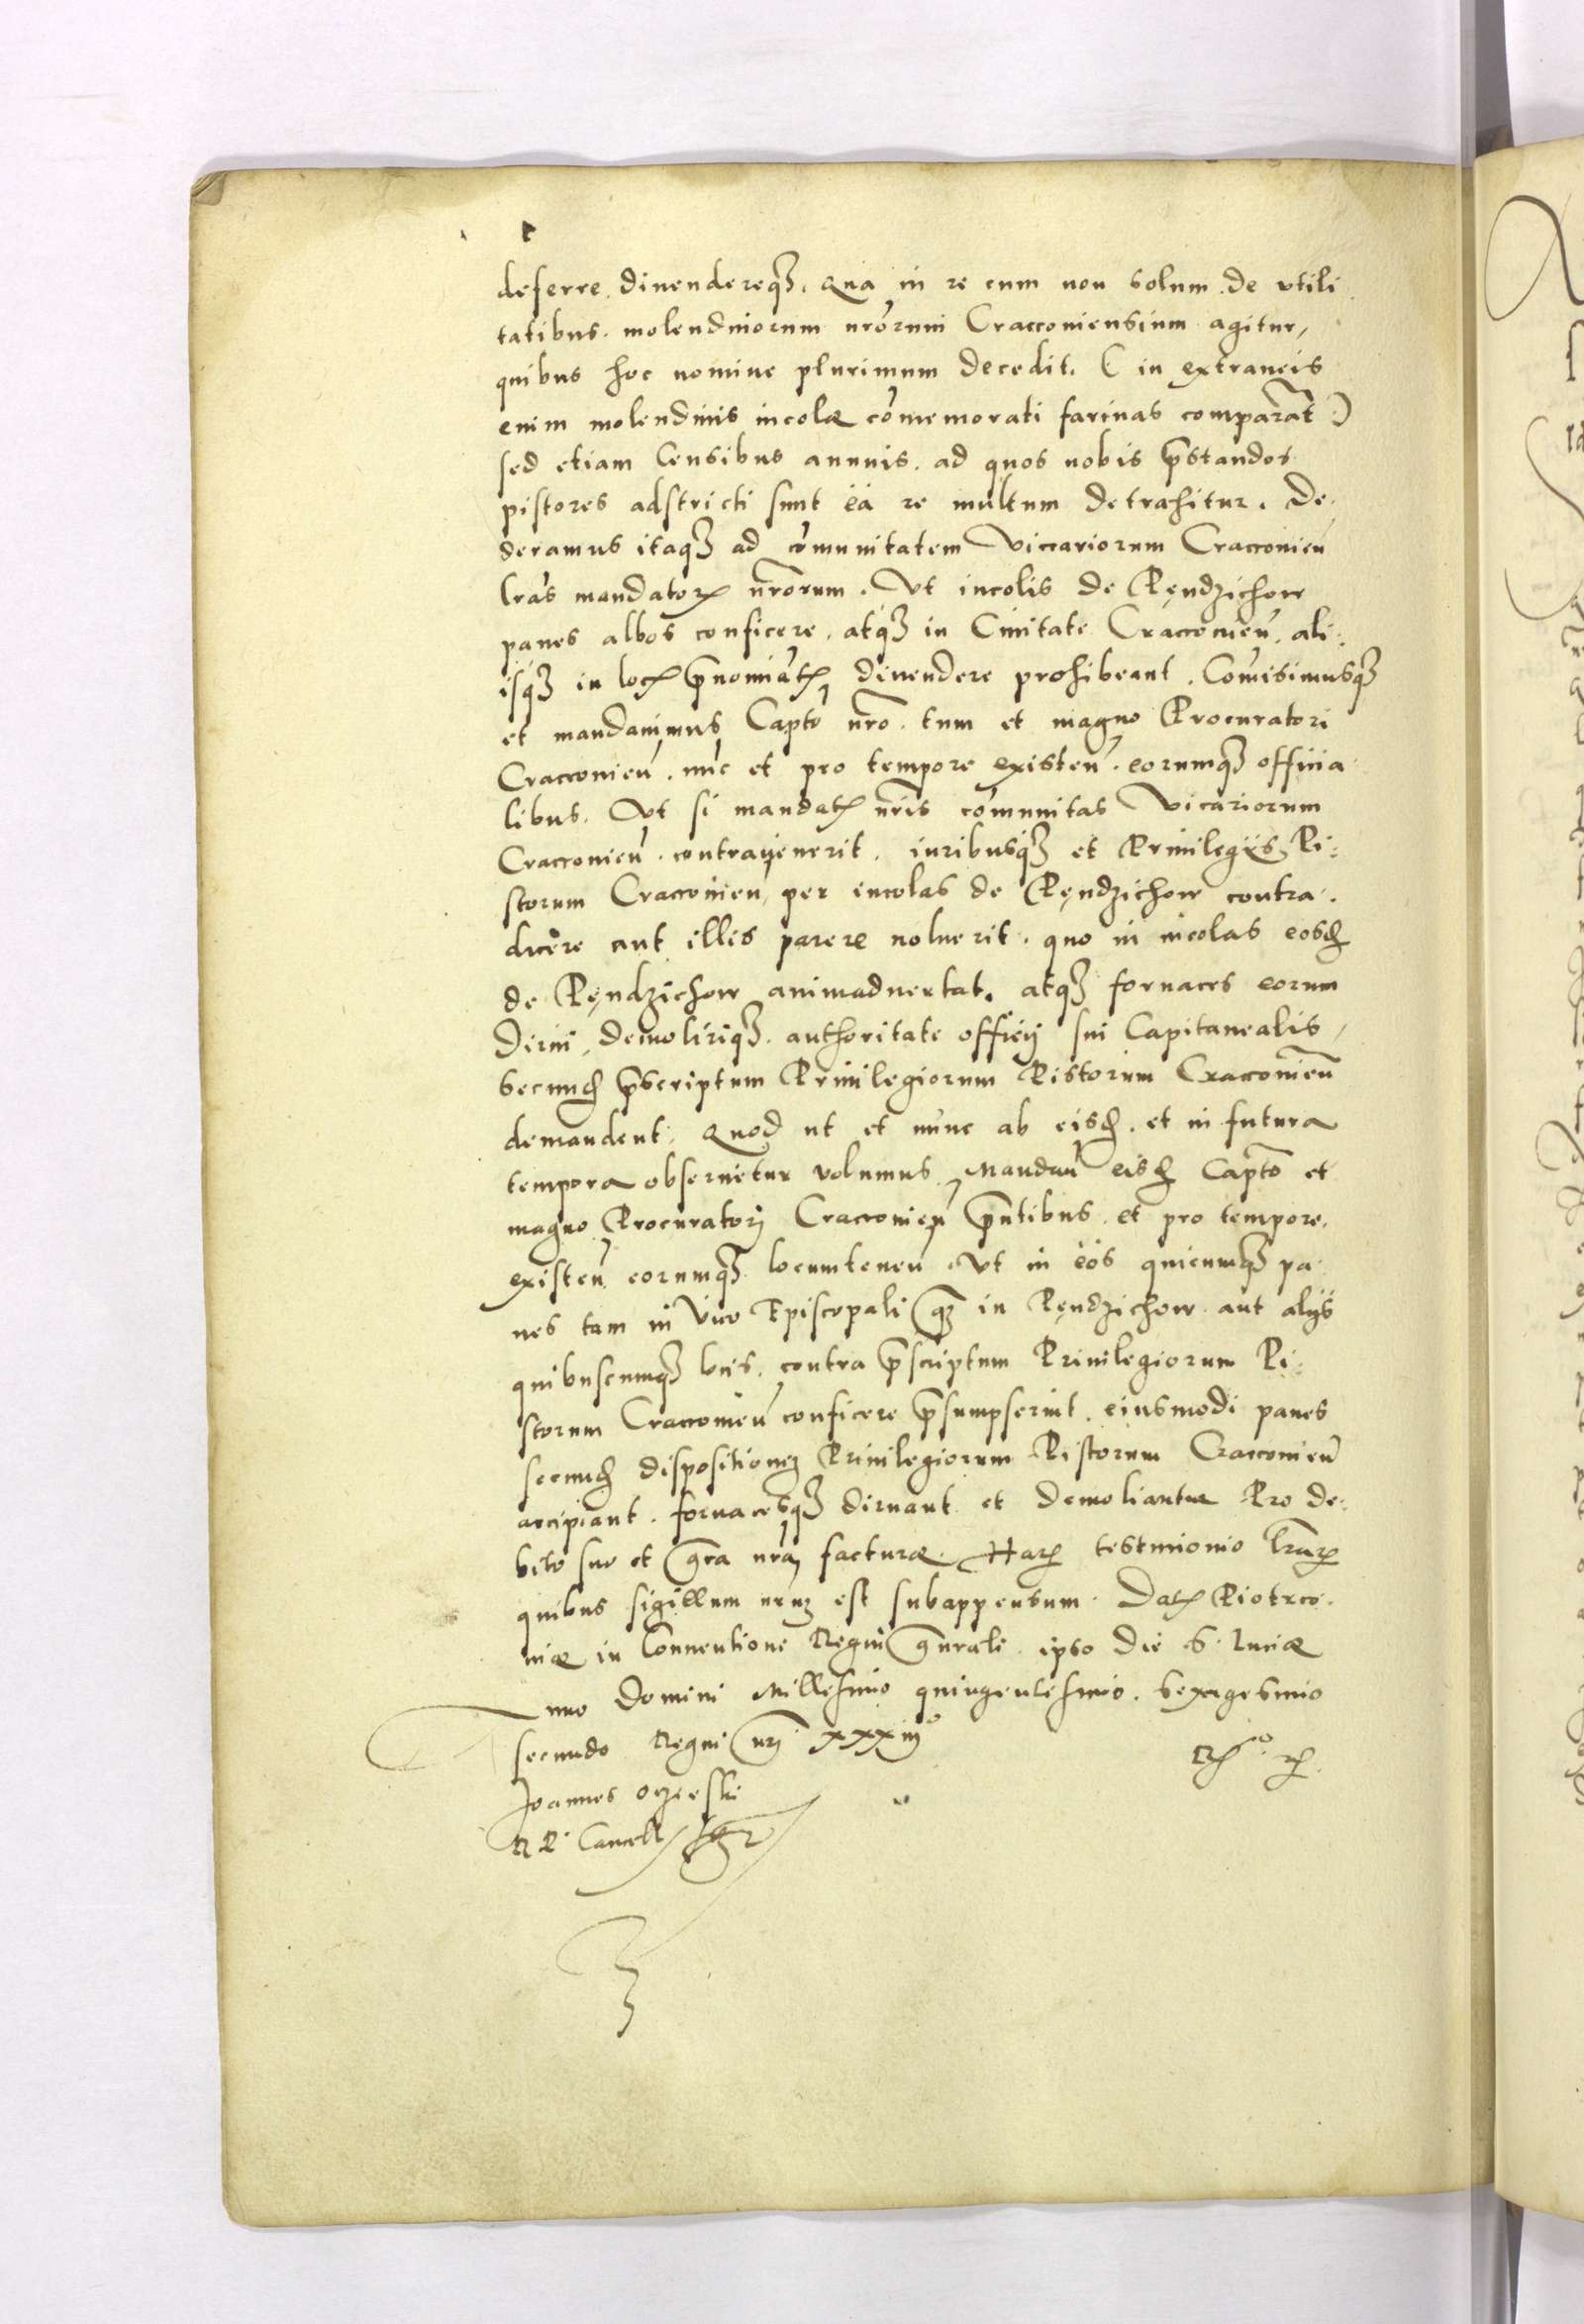 deferre divendereq3. Qua in re cum non solum de utili
tatibus molendinorum nrorum Cracconiensium agitur,
quibus hoc nomine plurimum decedit. ( in extraneis
enim molendinis incolæ comemorati farinas comparat )
sed etiam Censibus annuis ad quos nobis pstandos
pistores adstricti sunt ea re multum detrahitur. De
deramus itaq3 ad comunitatem Viccariorum Cracconien
lras mandator nrorum. Ut incolis de Rędzichow
panes albos conficere, atq3 in Civitate Cracconien. ali:
isq3 in loc pnominat divendere prohibeant. Comisimusq3
et mandavimus Capto nro. tum et magno Procuratori
Cracconien. nuc et pro tempore existen. eorumq3 officia
libus. Ut si mandat nris comunitas Vicariorum
Cracconien. contravenerit. iuribusq3 et Privilegijs Pi:
storum Cracconien per incolas de Rędzichow contra.
dicere aut illis parere noluerit. quo in incolas eosd
de Rędzichow animadvertat. atq3 fornaces eorum
Dirui, demoliriq3. authoritate officij sui Capitanealis,
secund pscriptum Privilegiorum Pistorum Cracconien
demandent, Quod ut et nunc ab eisd. et in futura
tempora observetur volumus, Mandan eisd Capto et
magno Procuratorj Cracconien pntibus. et pro tempore
existen eorumq3 locumtenen Ut in eos quicumq3 pa
nes tam in Vico Episcopali q3 in Rędzichow aut alijs
quibuscumq3 locis. contra pscriptum Privilegiorum Pi:
storum Cracconien conficere psumpserint. eiusmodi panes
secund dispositionem Privilegiorum Pistorum Cracconien
accipiant. fornacesq3 diruant et demoliantur Pro de:
bito suo et gra nra facturæ. Har testimonio lrar
quibus sigillum nrum est subappensum. Dat Piotrco.
viæ in Conventione Regni gnrali. ipso die S. Luciæ
Anno Domini Millesimo quingentesimo. sexagesimo
secundo Regni nrj xxxiijo
Joannes Oczieski
R P Cancell